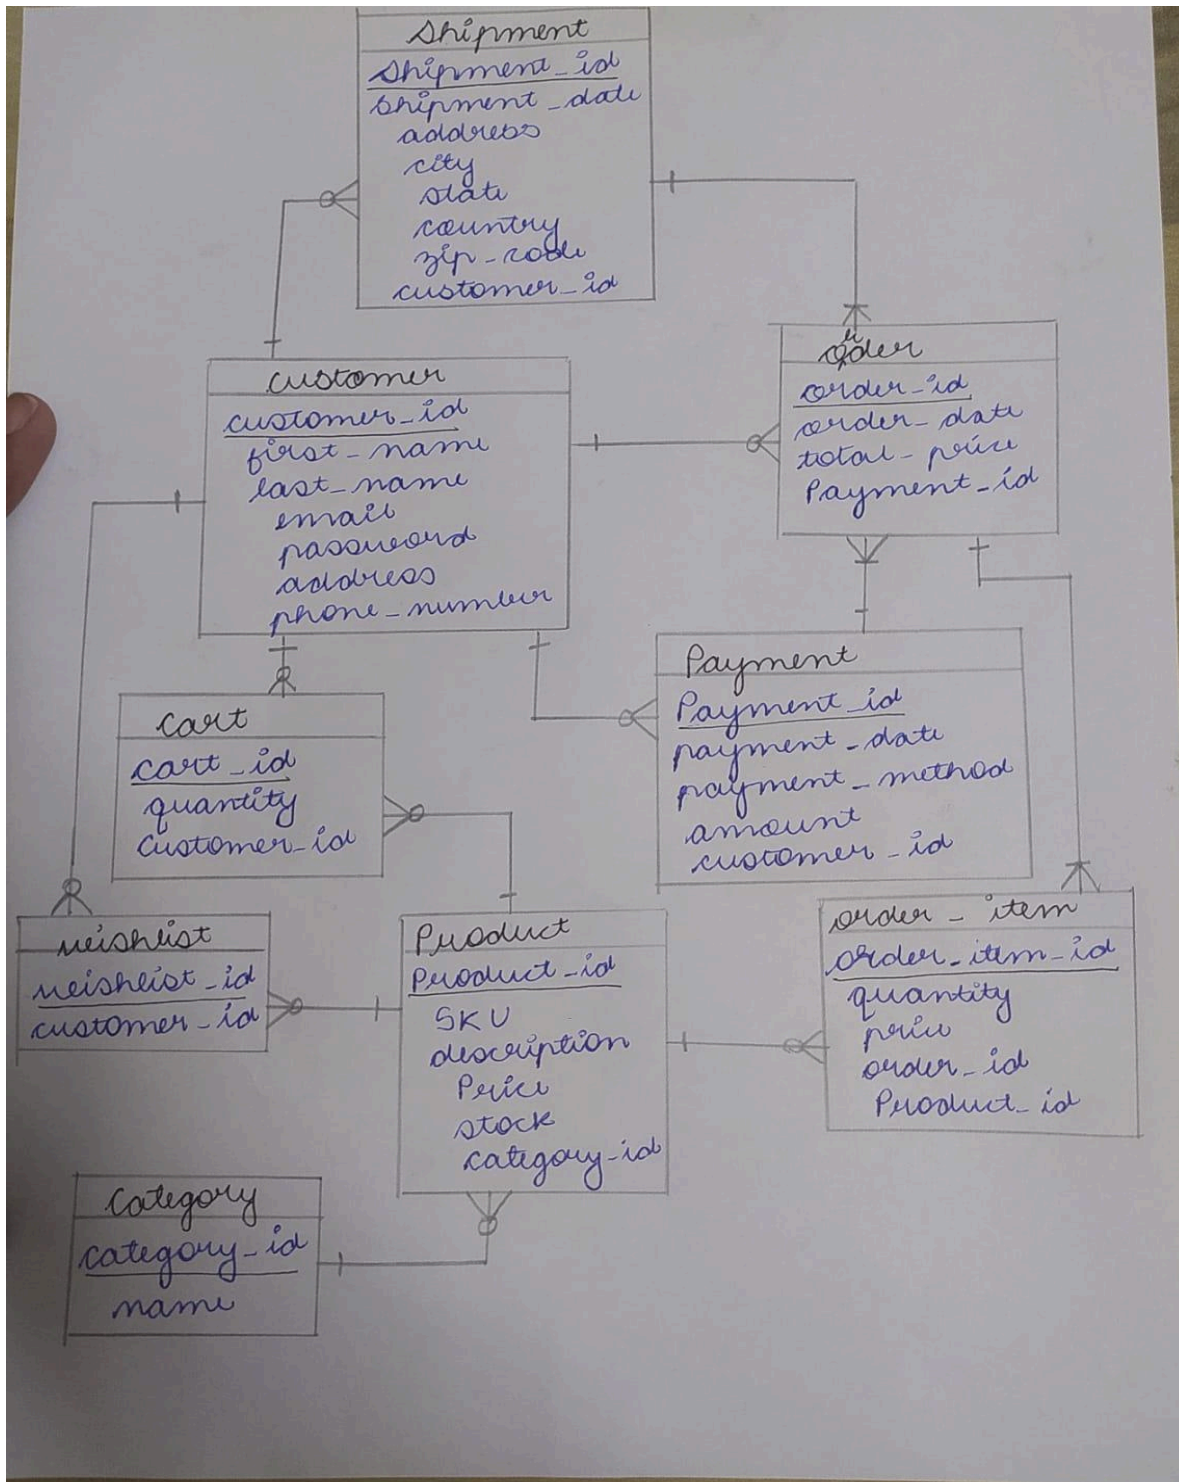 Shipment
Shipment_id
shipment_date
address
city
state
country
zip_code
customer_id
customer
customer_id
first_name
last_name
email
password
address
phone_number
order
order_id
order_date
total_price
Payment_id
Payment
Payment_id
payment_date
payment_method
amount
customer_id
cart
cart_id
quantity
customer_id
wishlist
wishlist_id
customer_id
Product
Product_id
SKU
description
Price
stock
category_id
order_item
order_item_id
quantity
price
order_id
Product_id
Category
category_id
name